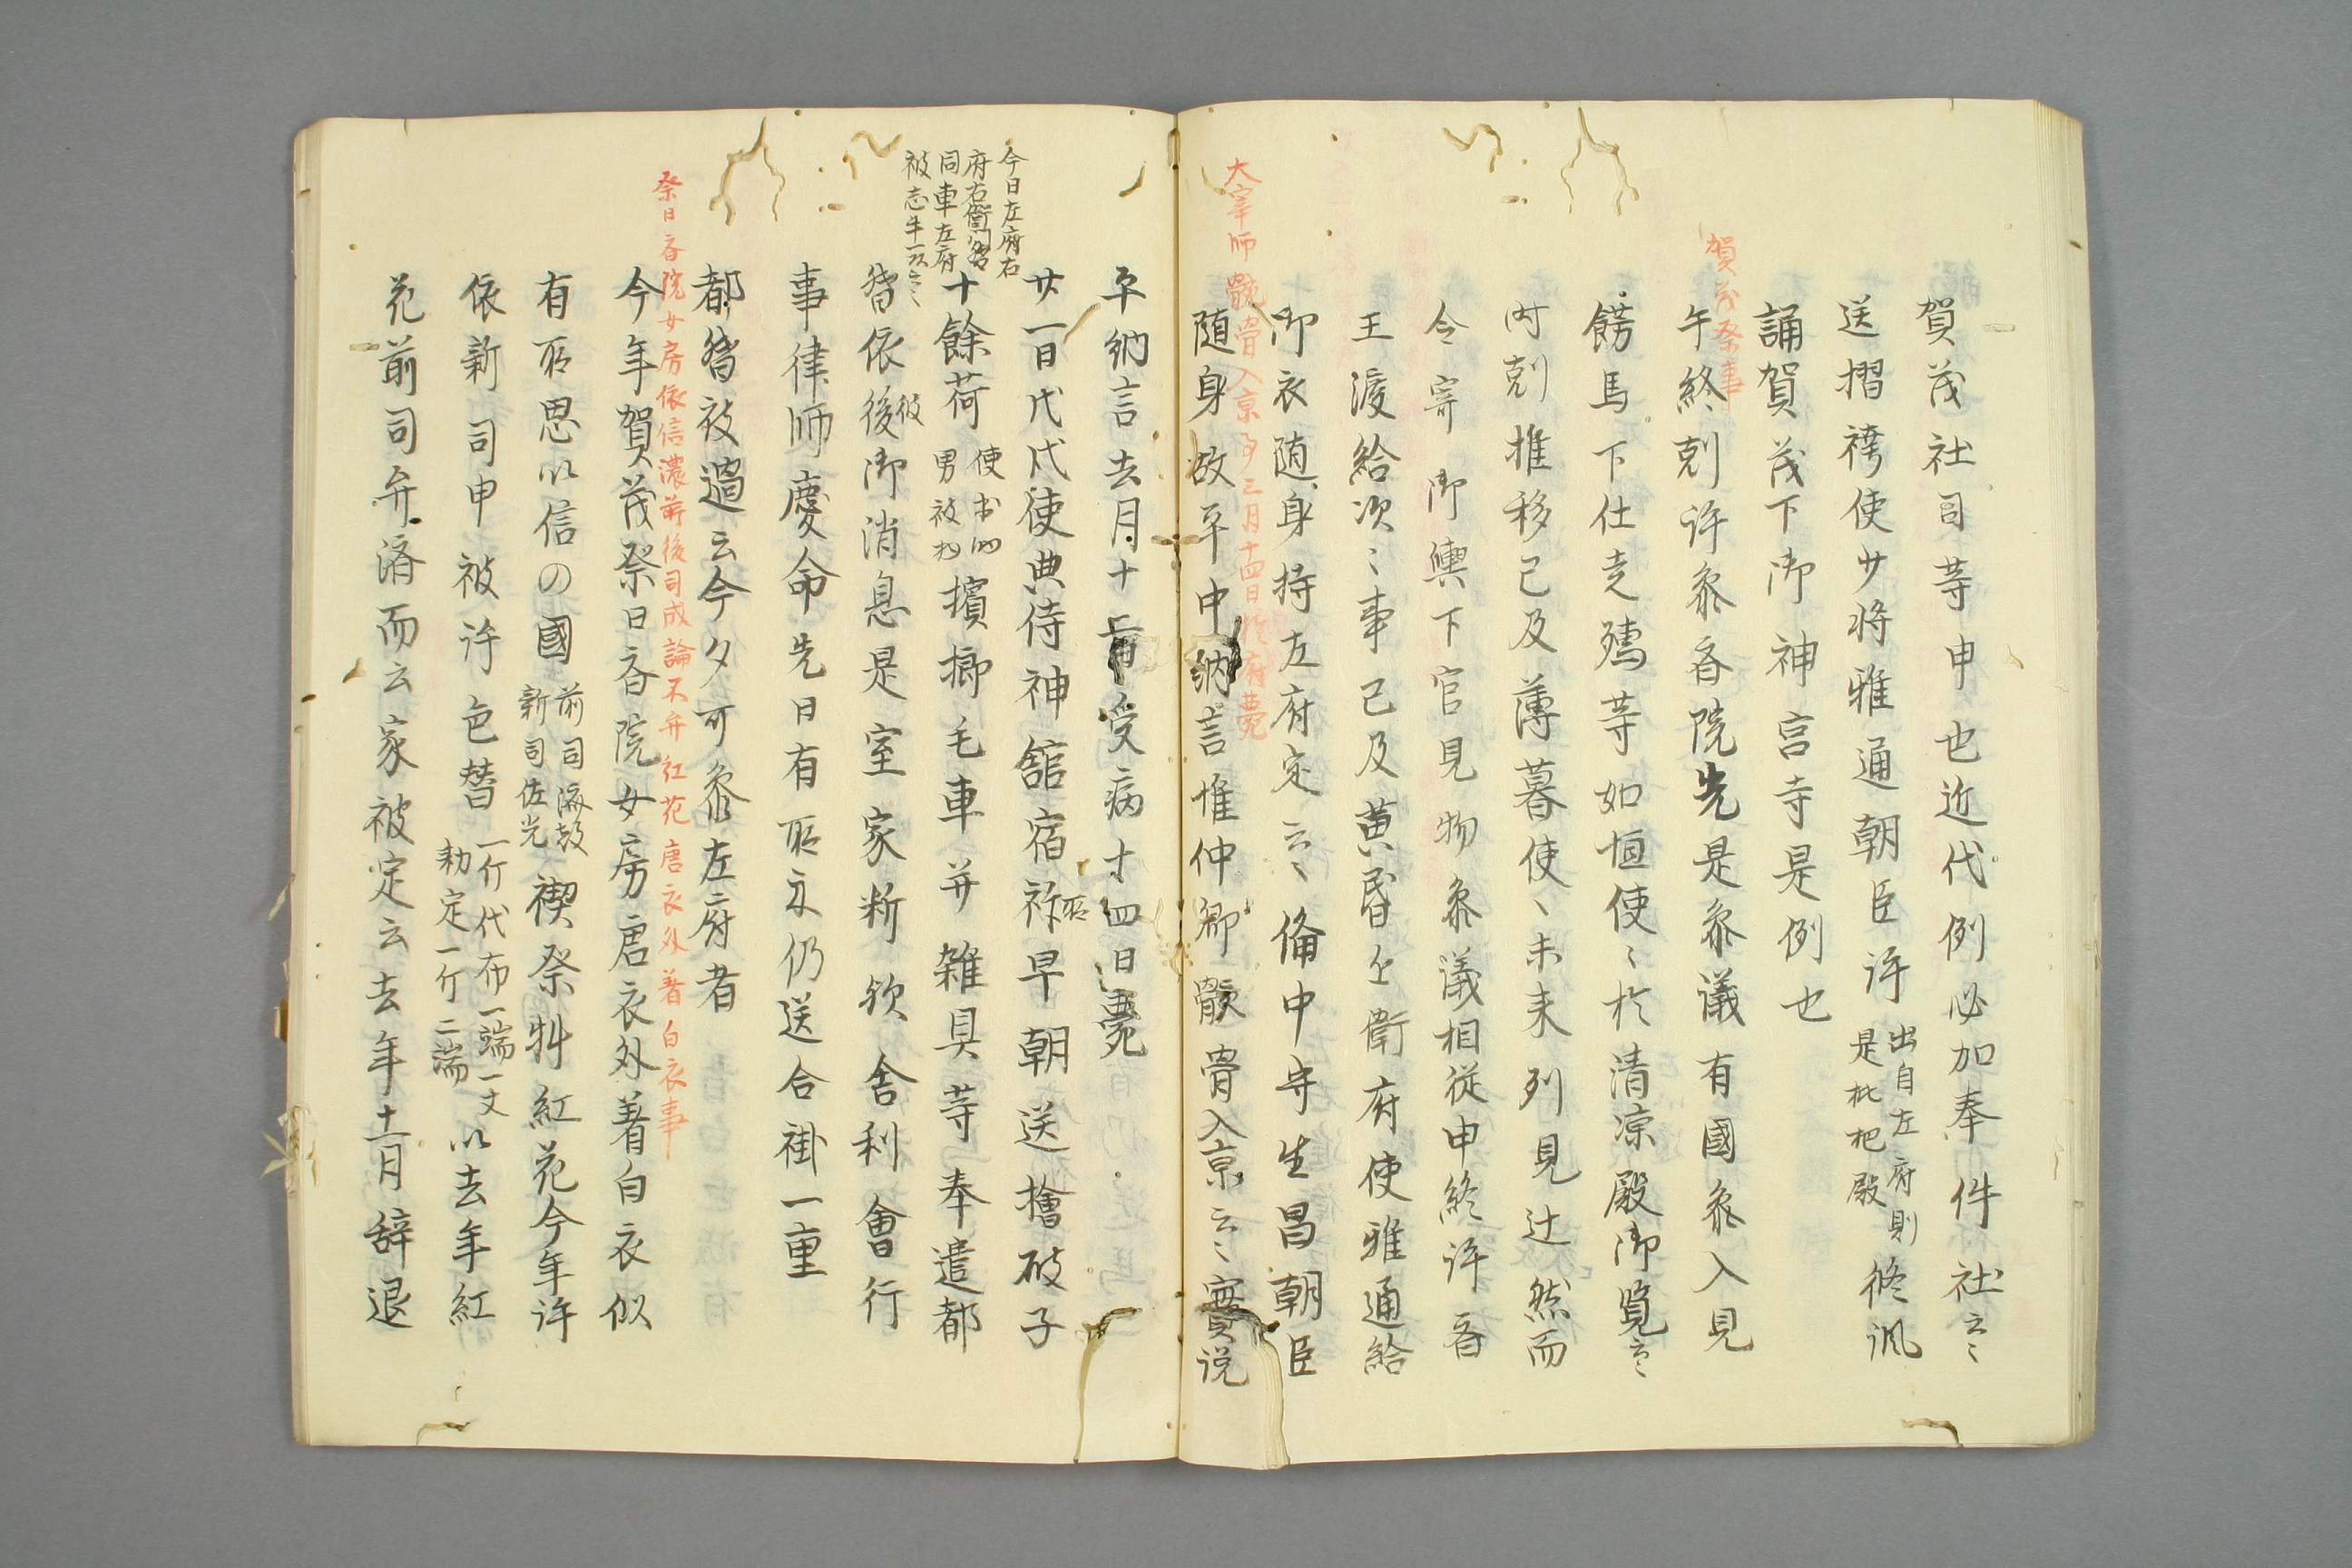 賀茂社司等申也近代例必加奉件社云々
送摺袴使少将雅通朝臣許
出自左府則
是枇杷殿
修諷
誦賀茂下御神宮寺是例也
賀茂祭事
午終剋許参斎院先是参議有國参入見
餝馬下仕走孺等如恒使々於清凉殿御覧云々
時剋推移已及薄暮使々未来列見辻然而
令寄御輿下官見物参議相従申終許斎
王渡給次々事已及黄昏左衛府使雅通給
御衣随身持左府定云々備中守生昌朝臣
大宰帥骸骨入京事三月十四日於府薨
随身故平中納言惟仲卿骸骨入京云々實説
平納言去月十一日受病十四日薨
廿一日代代使典侍神舘宿祢早朝送擔破子
所
今日左府右
府右衛門督
同車左府
被志牛一頭云々
十餘荷
使書師
男被物
檳榔毛車并雑具等奉遣都
督依後御消息是室家料欤舎利會行
彼
事律師慶命先日有所示仍送合褂一重
都督被過云今夕可参左府者
祭日斎院女房依信濃前後司成論不弁紅花唐衣外着白衣事
今年賀茂祭日斎院女房唐衣外着白衣似
有所思以信の國
前司済政
新司佐光
禊祭料紅花今年許
依新司申被許色替
一斤代布一端一丈
勅定一斤二端
以去年紅
花前司弁済而云家被定云去年十一月辞退